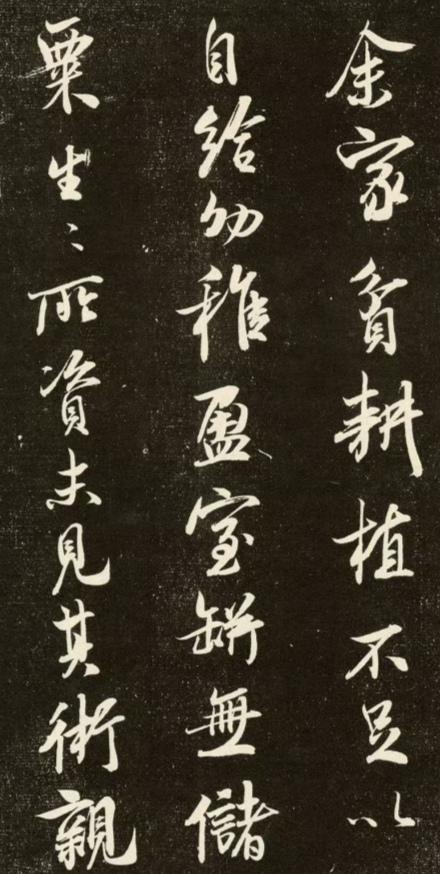 余家貧耕植不足以
自給幼稚盈室缾無儲
粟生〻所資未見其術親